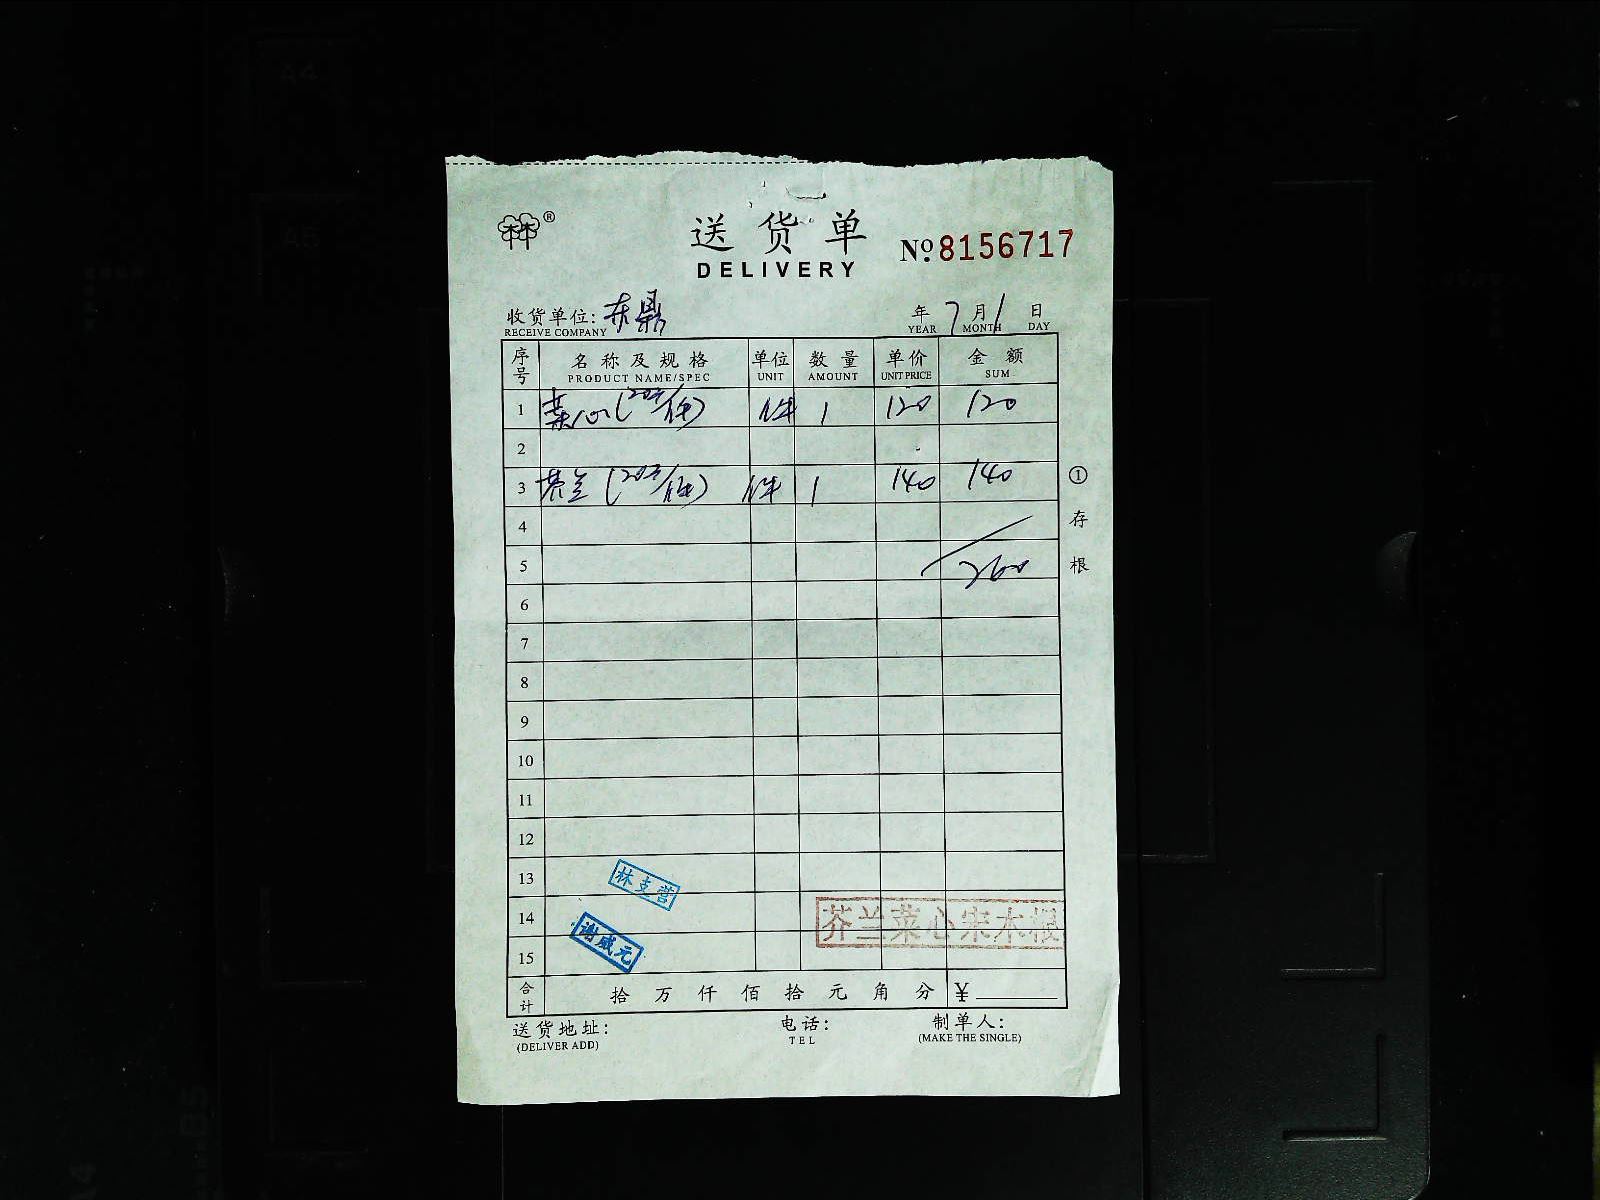 林林®
送货单
DELIVERY
№ 8156717
收货单位: 东鼎 年 7 月 1 日
RECEIVE COMPANY YEAR MONTH DAY
序号 名称及规格 单位 数量 单价 金额
PRODUCT NAME/SPEC UNIT AMOUNT UNIT PRICE SUM
1 菜心(20斤/件) 件 1 120 120
2
3 芥兰(20斤/件) 件 1 140 140
4
5 260
6
7
8
9
10
11
12
13
14
15
① 存根
林支营
谢咸元
芥兰菜心宋木根
合计 拾 万 仟 佰 拾 元 角 分 ¥
送货地址: 电话: 制单人:
(DELIVER ADD) TEL (MAKE THE SINGLE)